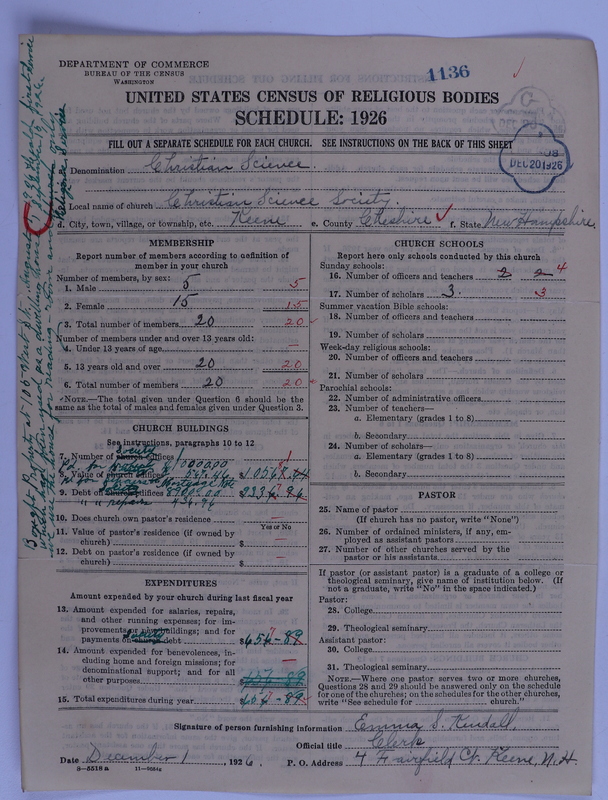 DEPARTMENT OF COMMERCE
BUREAU OF THE CENSUS
WASHINGTON
1136
UNITED STATES CENSUS OF RELIGIOUS BODIES
SCHEDULE: 1926
FILL OUT A SEPARATE SCHEDULE FOR EACH CHURCH. SEE INSTRUCTIONS ON THE BACK OF THIS SHEET
DEC 20 1926
Denomination Christian Science.
Local name of church Christian Science Society
d. City, town, village, or township, etc. Keene e. County Cheshire f. State New Hampshire.
MEMBERSHIP
Report number of members according to definition of
member in your church
Number of members, by sex:
1. Male 5 5
2. Female 15 15
3. Total number of members 20 20
Number of members under and over 13 years old:
4. Under 13 years of age —
5. 13 years old and over 20 20
6. Total number of members 20 20
NOTE.—The total given under Question 6 should be the
same as the total of males and females given under Question 3.
CHURCH BUILDINGS
See instructions, paragraphs 10 to 12
7. Number of church edifices
8. Value of church edifices
9. Debt on church edifices
10. Does church own pastor's residence
Yes or No
11. Value of pastor's residence (if owned by
church) $ —
12. Debt on pastor's residence (if owned by
church) $ —
EXPENDITURES
Amount expended by your church during last fiscal year
13. Amount expended for salaries, repairs,
and other running expenses; for im-
provements or buildings; and for
payments on church debt
14. Amount expended for benevolences, in-
cluding home and foreign missions; for
denominational support; and for all
other purposes
15. Total expenditures during year
CHURCH SCHOOLS
Report here only schools conducted by this church
Sunday schools:
16. Number of officers and teachers 2 2 4
17. Number of scholars 3. 3
Summer vacation Bible schools:
18. Number of officers and teachers
19. Number of scholars
Week-day religious schools:
20. Number of officers and teachers
21. Number of scholars
Parochial schools:
22. Number of administrative officers
23. Number of teachers—
a. Elementary (grades 1 to 8)
b. Secondary
24. Number of scholars—
a. Elementary (grades 1 to 8)
b. Secondary
PASTOR
25. Name of pastor
(If church has no pastor, write "None")
26. Number of ordained ministers, if any, em-
ployed as assistant pastors
27. Number of other churches served by the
pastor or his assistants
If pastor (or assistant pastor) is a graduate of a college or
theological seminary, give name of institution below. (If
not a graduate, write "No" in the space indicated.)
Pastor:
28. College
29. Theological seminary
Assistant pastor:
30. College
31. Theological seminary
NOTE.—Where one pastor serves two or more churches,
Questions 28 and 29 should be answered only on the schedule
for one of the churches; on the schedules for the other churches,
write "See schedule for ______ church."
Signature of person furnishing information Emma S. Kendall,
Official title Clerk
Date December 1, 1926. P. O. Address 4 Fairfield Ct. Keene, N. H.
8—5518 a